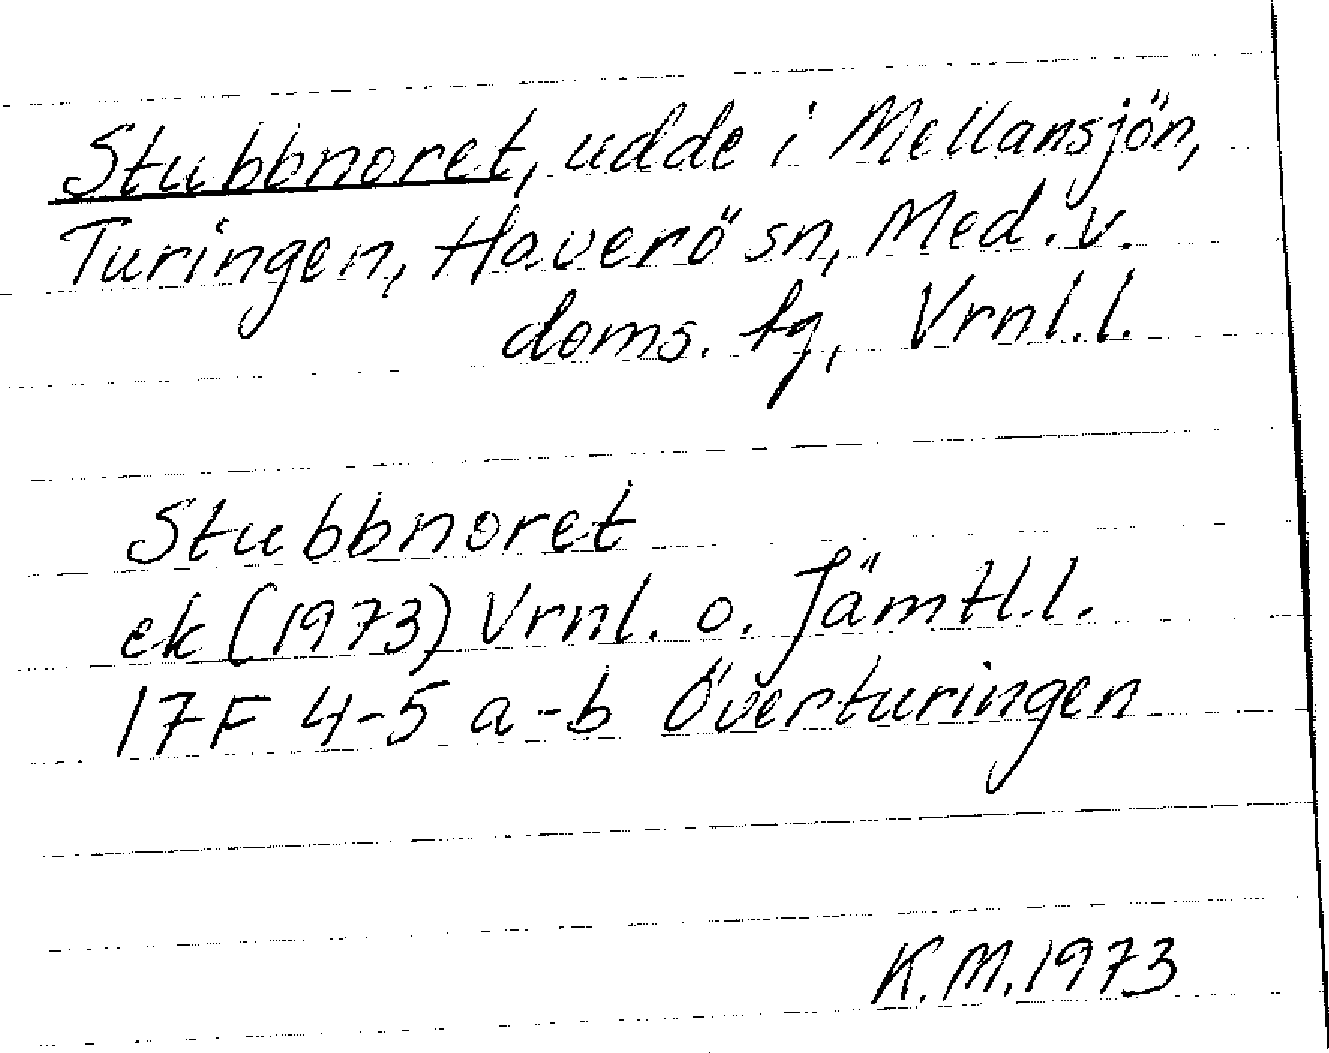 Stubbnoret, udde i Mellansjön,
Turingen, Haverö sn, Med. v.
doms. tg, Vrnl.l.
Stubbnoret
ek (1973) Vrnl. o. Jämtl.l.
17F 4-5 a-b Överturingen
K.M.1973